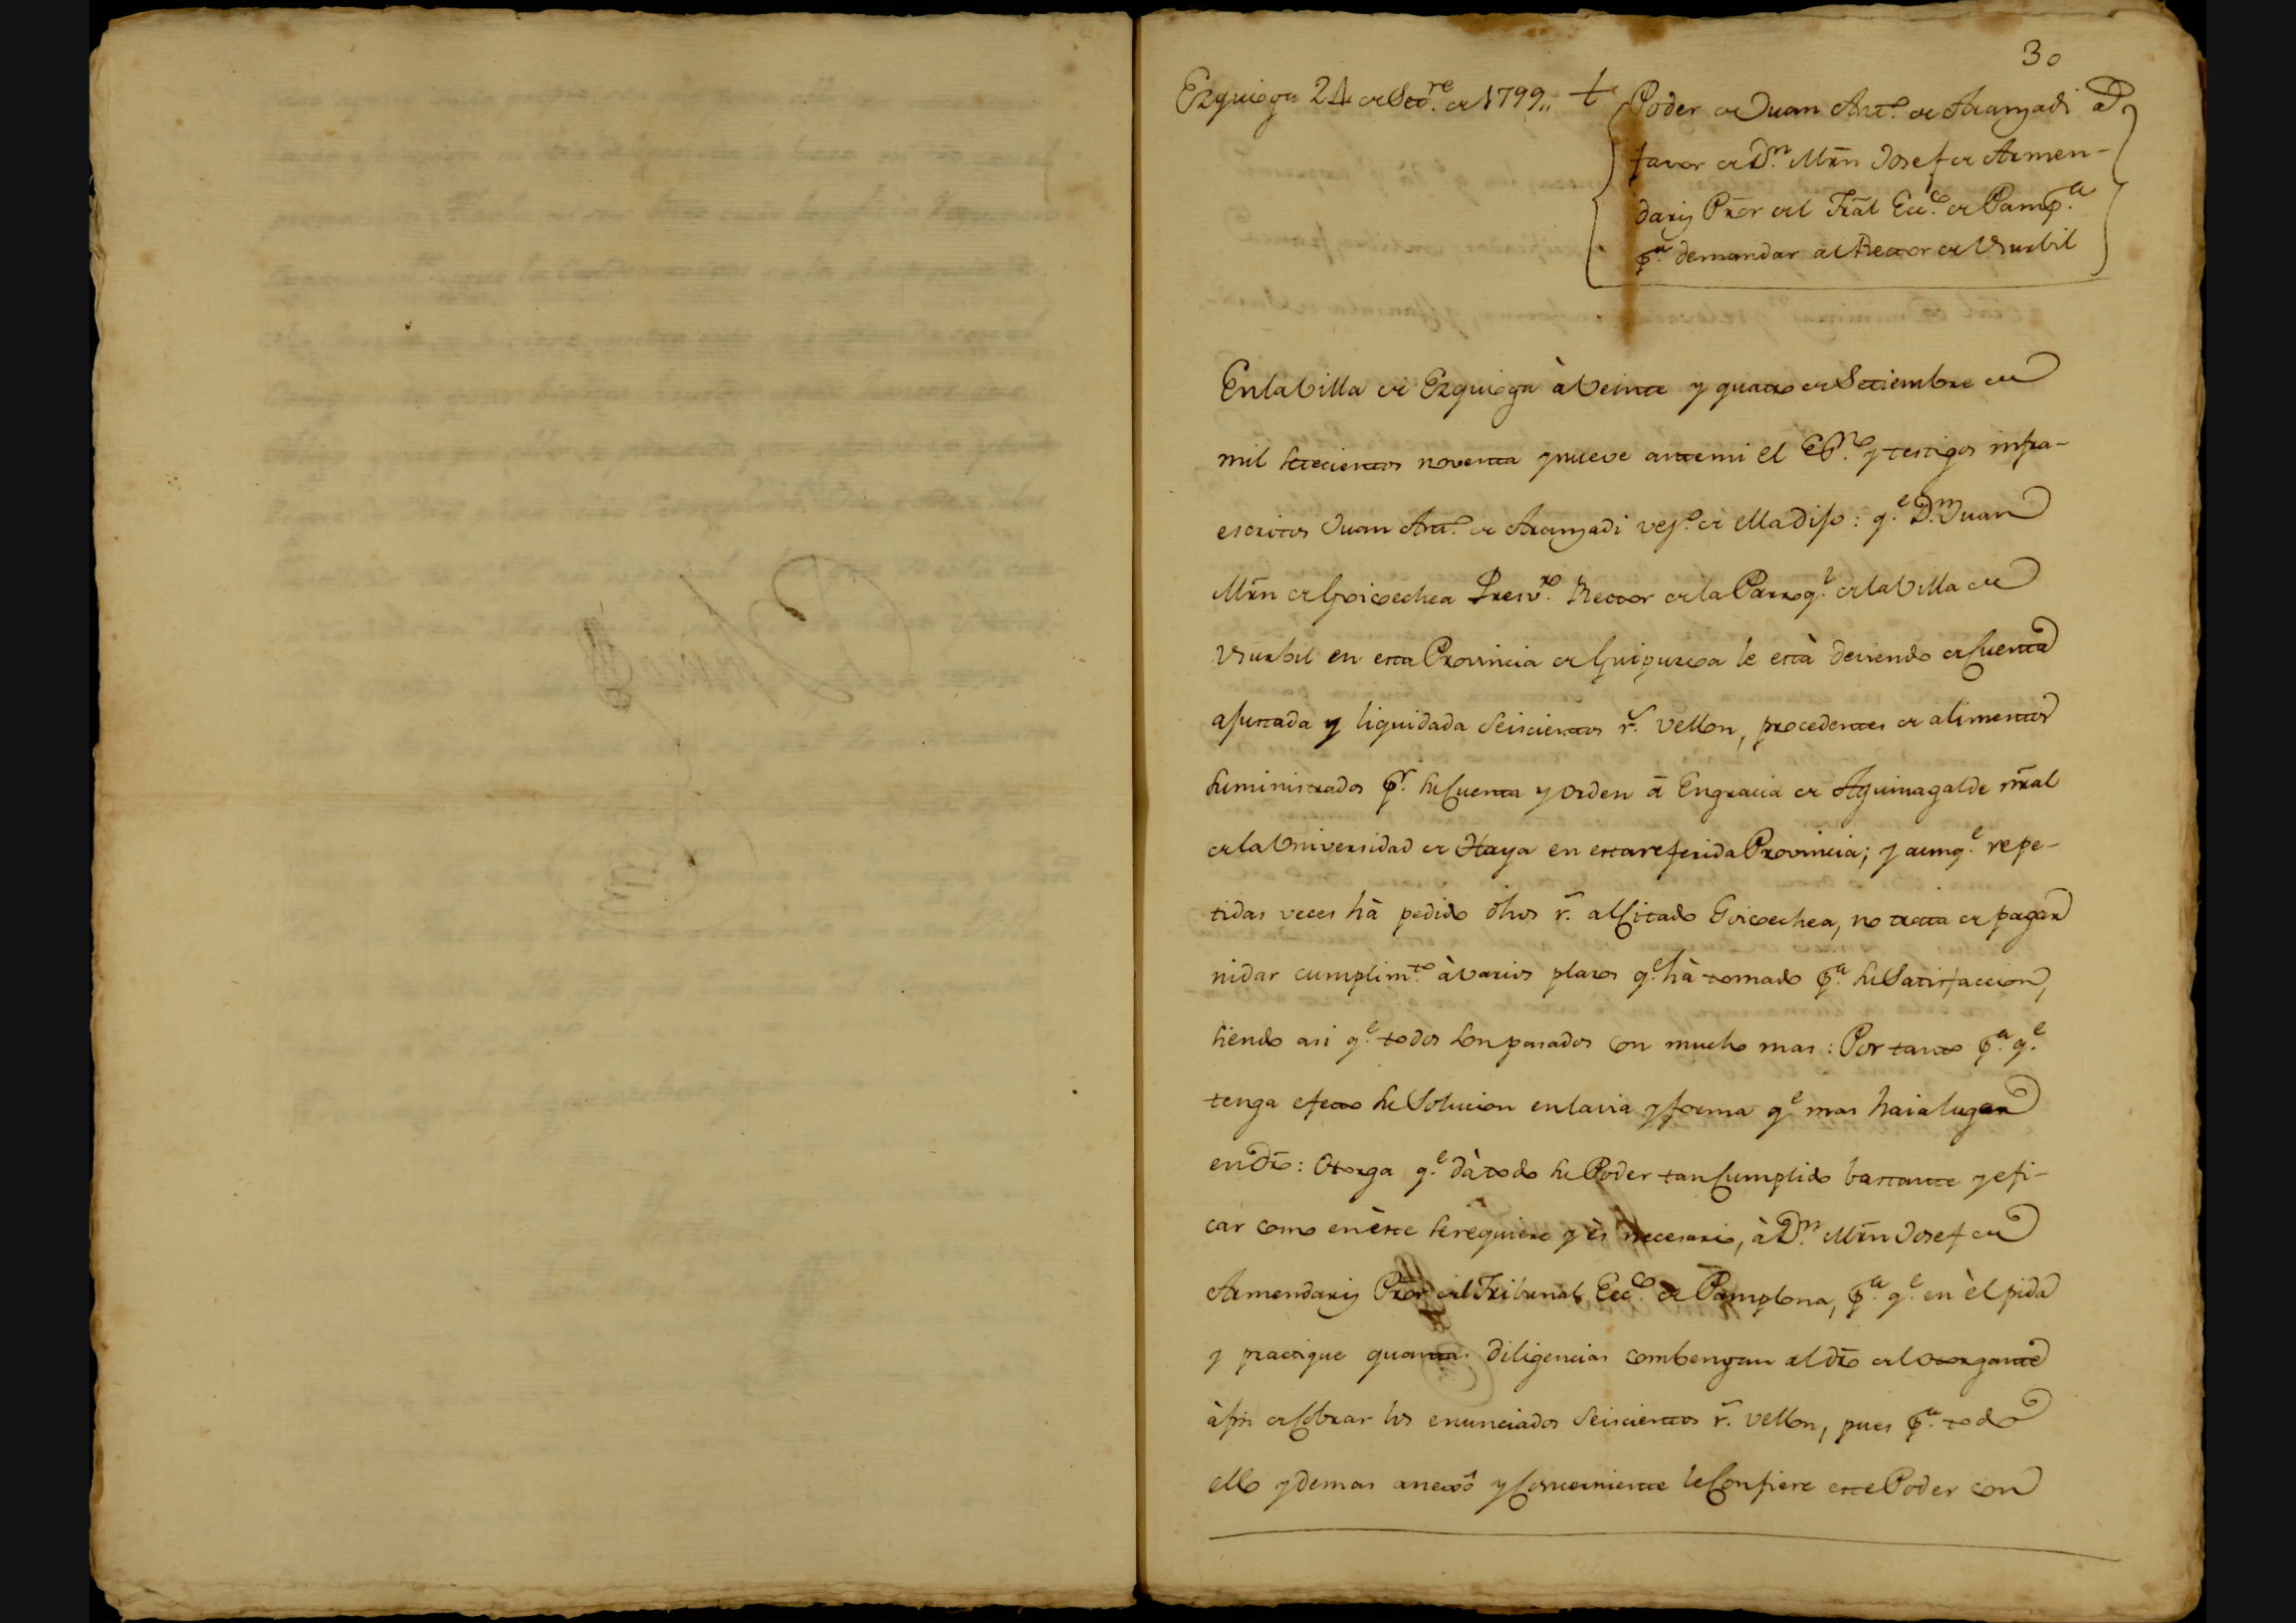 30
Ezquioga 24 de Sett.re de 1799,, +
Poder de Juan Ant.o de Aranzadi a
favor de D.n Mrn Josef de Armen-
dariz Pror del Tral Ecc.o de Pamp.a
p.a demandar al Rector de Usurbil
En la Villa de Ezquioga à Veinte y quatro de Setiembre de
mil setecientos noventa y nueve ante mi el Es.no y testigos infra-
escritos Juan Ant.o de Aranzadi vez.o de ella Dijo: q.e D.n Juan
Mrn de Goicoechea Presv.ro Rector de la Parroq.l de la Villa de
Usurbil en esta Provincia de Guipuzcoa le està deviendo de Cuenta
ajustada y liquidada Seiscientos r.s vellon, procedentes de alimentos
suministrados p.r su Cuenta y Orden à Engracia de Aguinagalde nral
de la Universidad de Haya en esta referida Provincia; y aunq.e repe-
tidas veces hà pedido dhos r.s al Citado Goicoechea, no trata de pagar
ni dar cumplim.to à varios plazos q.e hà tomado p.a su Satisfaccion,
siendo asi q.e todos son pasados con mucho mas: Por tanto p.a q.e
tenga efecto su Solucion en la via y forma q.e mas haia lugar
en dro: Otorga q.e dà todo su Poder tan Cumplido bastante y efi-
caz como en èste se requiere y ès necesario, à D.n Mrn Josef de
Armendariz Pror del Tribunal Ecc.o de Pamplona, p.a q.e en èl pida
y practique quantas diligencias combengan al dro del Otorgante
à fin de Cobrar los enunciados Seiscientos r.s vellon, pues p.a todo
ello y demas anexo y Concerniente le Confiere este Poder con